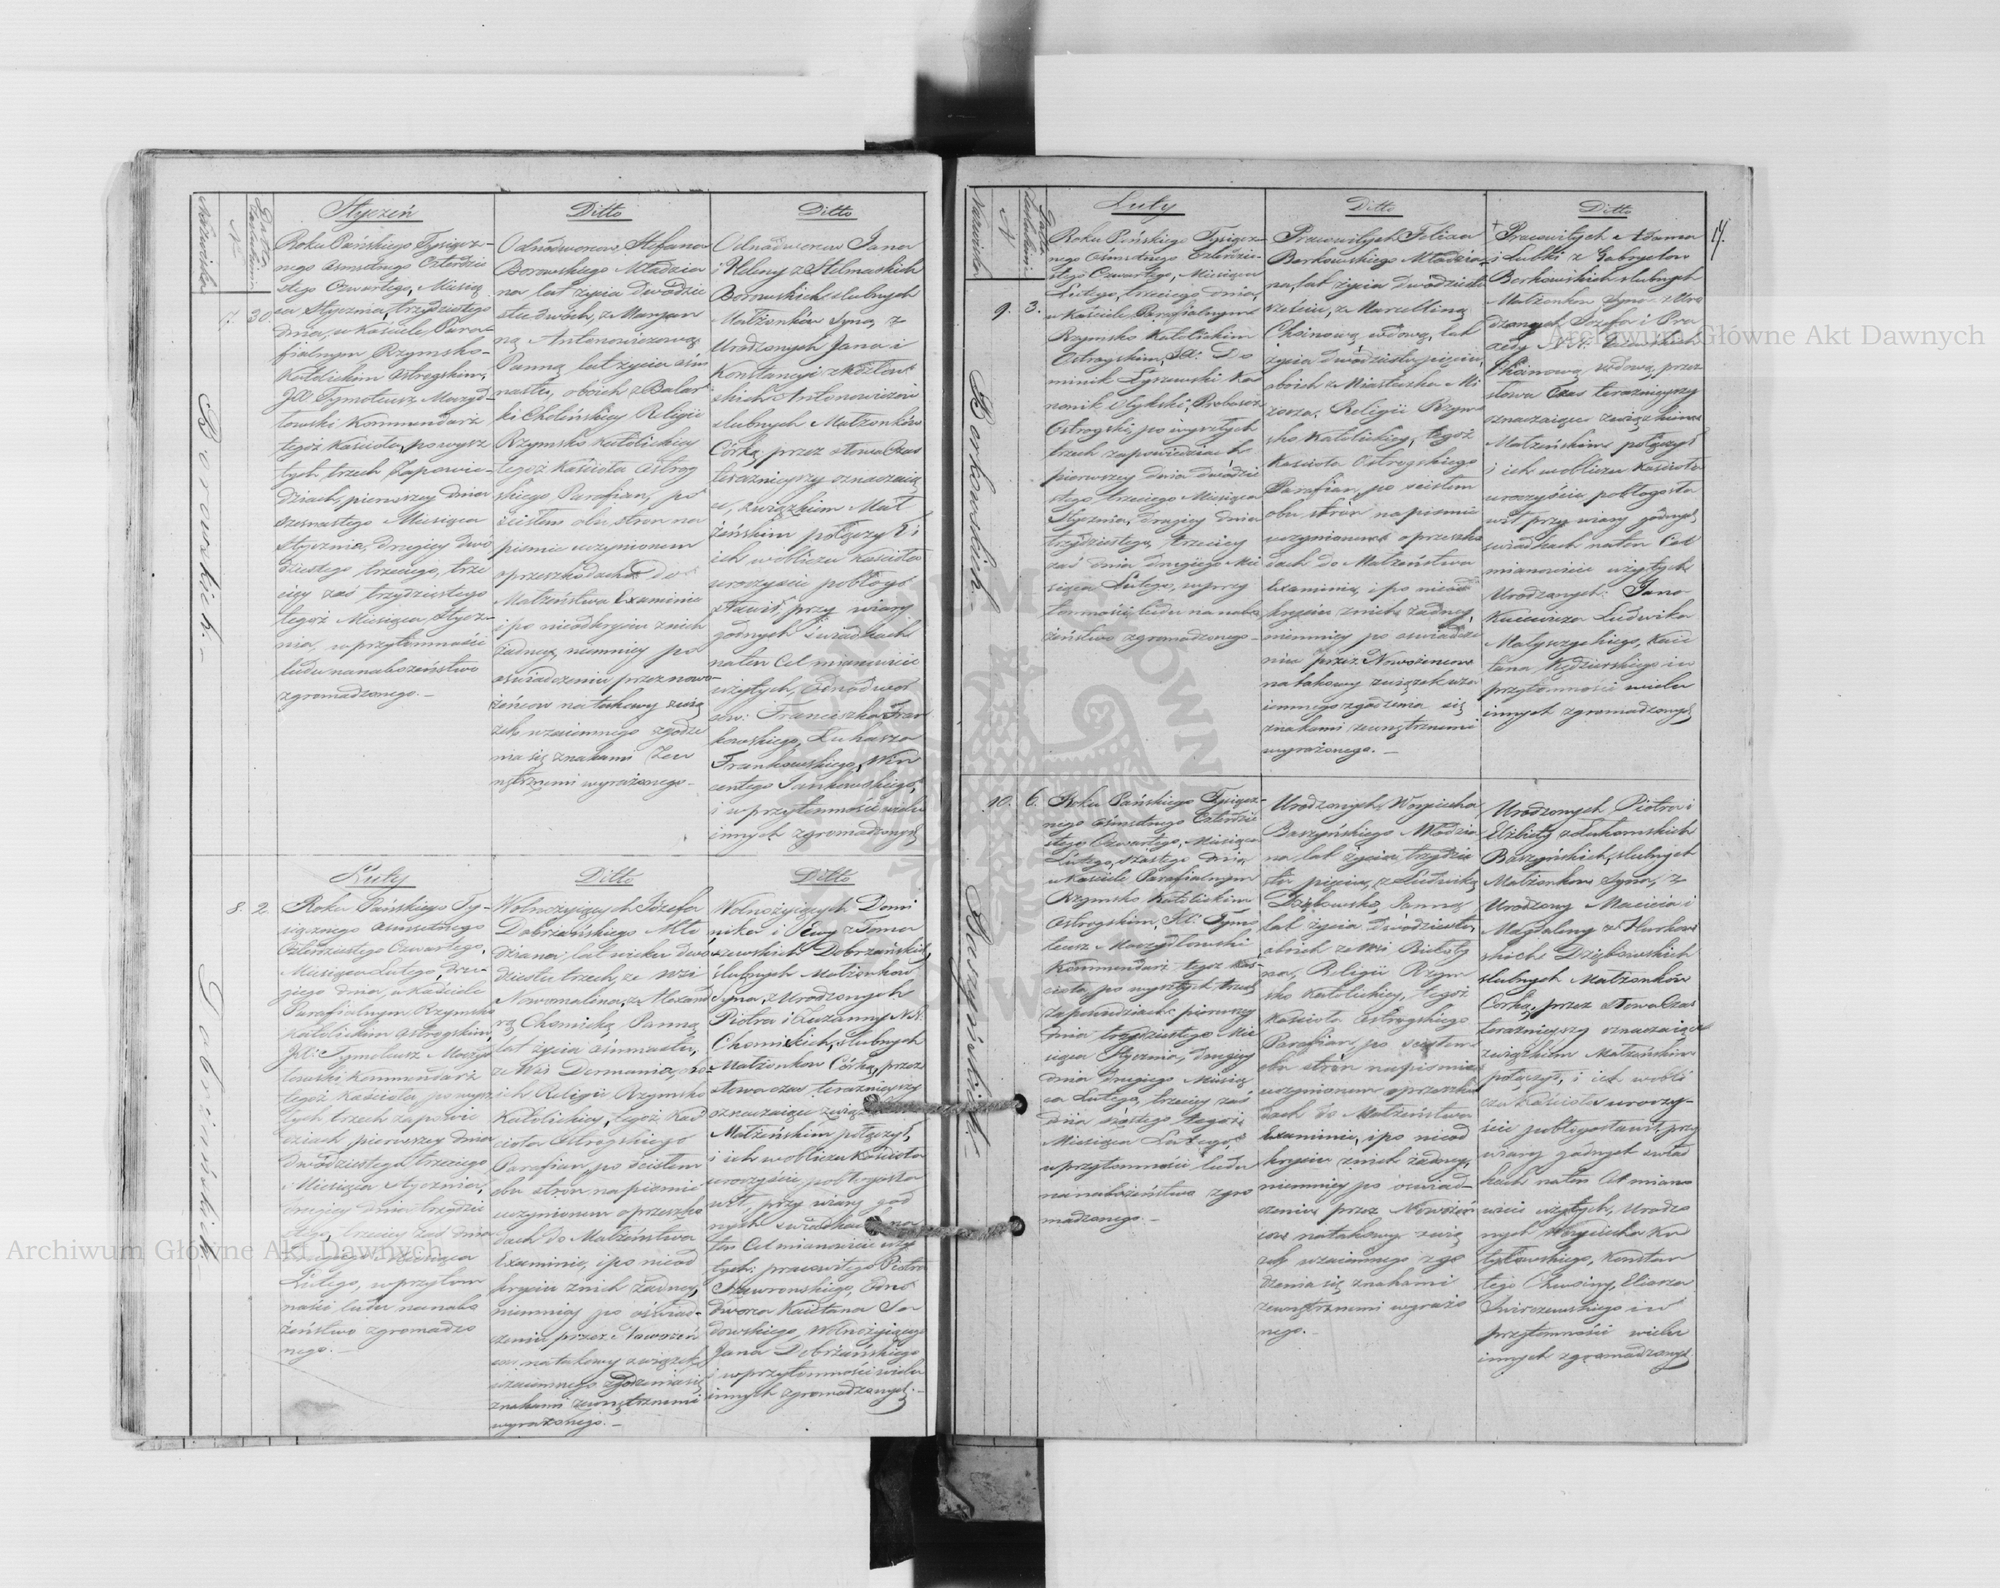 Nazwiska
N
Data zaślubin
Styczeń
Roku Pańskiego Tysiącz-
nego osmsetnego Czterdzie
stego Czwartego, Miesią
ca Stycznia, trzydziestego
dnia, w Kościele Para-
fialnym Rzymsko-
Katolickim Ostrogskim,
JX Tymoteusz Maszyd-
łowski Kommendarz
tegoż Kościoła, po wysz
łych trzech Zapowie-
dziach, pierwszey dnia
szesnastego Miesiąca
Stycznia, drugiey dwu
dziestego trzeciego, trze
ciey zaś trzydziestego
tegoż Miesiąca Stycz-
nia, w przytomności
ludu na nabożeństwo
zgromadzonego.-
7. 30.
Borowskich.-
Ditto
Odnodworców Stefana
Borowskiego Młodzia
na lat życia dwadzie
ścia dwóch, z Maryan
ną Antonowiczową
Panną lat życia ośm
nastu, oboich z
Religii
Rzymsko Katolickiey
tegoż Kościoła Ostrog
skiego Parafian, po
ścisłem obu stron na
piśmie uczynionem
o przeszkodach do
Małżeństwa Examinie
i po nieodkryciu z nich
żadney, niemniey po
oświadczeniu przez nowo-
żeńców na takowy zwią
zek wzaiemnego zgodze
nia się znakami zew
nętrznemi wyrażonego.-
Ditto
Odnodworców Jana
i Heleny z Stelmaskich
Borowskich ślubnych
Małżonków Syna, z
Urodzonych Jana i
Konstancyi z Kozłow
skich Antonowiczów
ślubnych Małżonków
Córką; przez słowa Czas
teraźnieyszy oznaczaią
ce, związkiem Mał
żeńskim połączył i
ich w obliczu Kościoła
uroczyście pobłogo
sławił, przy wiary
godnych świadkach
na ten Cel mianowicie
użytych, Odnodwor
ców: Franciszka Fran
kowskiego, Łukasza
Frankowskiego, Win
centego Jankowskiego,
i w przytomności wielu
innych zgromadzonych
8. 2.
Dobrzańskich.
Luty
Roku Pańskiego Ty-
siącznego Osmsetnego
Czterdziestego Czwartego,
Miesiąca Lutego, dru-
giego dnia, w Kościele
Parafialnym Rzymsko
Katolickim Ostrogskim,
JX: Tymoteusz Maszyd
łowski Kommendarz
tegoż Kościoła po wysz
łych trzech zapowie
dziach pierwszey dnia
dwudziestego trzeciego
Miesiąca Stycznia,
drugiey dnia trzydzie
stego, trzeciey zaś dnia
drugiego Miesiąca
Lutego, w przytom
ności ludu na nabo
żeństwo zgromadzo
nego.-
Ditto
Wolnożyiących Józefa
Dobrzańskiego Mło
dziana, lat wieku dwu
dziestu trzech, ze wsi
Nowomalina, z Alexand
rą Chomicką Panną
lat życia ośmnastu,
ze Wsi Dermania, obo
ich Religii Rzymsko
Katolickiey, tegoż Koś
cioła Ostrogskiego
Parafian, po ścisłem
obu stron na piśmie
uczynionem o przeszko
dach do Małżeństwa
Examinie, i po nieod
kryciu z nich żadney,
niemniey po oświad-
czeniu przez Nowożeń
ców na takowy związek
wzaiemnego zgodzenia się
znakami zewnętrznemi
wyrażonego.-
Ditto
Wolnożyiących Domi
nika i Ewy z Toma
szewskich Dobrzańskich
ślubnych Małżonków
Syna, z Urodzonych
Piotra i Zuzanny NN:
Chomickich, ślubnych
Małżonków Córką, przez
słowa czas teraźnieyszy
oznaczaiące związkiem
Małżeńskim połączył,
i ich w obliczu Kościoła
uroczyście pobłogosła
wił, przy wiary god
nych świadkach na
ten Cel mianowicie uży
tych: pracowitego Piotra
Szawrowskiego, Odno
dworca Kaietana Sa
dowskiego, Wolnożyiącego
Jana Dobrzańskiego
i w przytomności wielu
innych zgromadzonych.-
14.
Nazwiska
N
Data zaślubin
Luty
Roku Pańskiego Tysiącz-
nego Osmsetnego Czterdzie-
stego Czwartego, Miesiąca
Lutego, trzeciego dnia,
w Kościele Parafialnym
Rzymsko Katolickim
Ostrogskim, JX: Do
minik Łyszewski Ka
nonik Ołykski, Proboszcz
Ostrogski, po wyszłych
trzech zapowiedziach
pierwszey dnia dwudzie
stego trzeciego Miesiąca
Stycznia, drugiey dnia
trzydziestego, trzeciey
zaś dnia drugiego Mie
siąca Lutego, w przy
tomności ludu na nabo
żeństwo zgromadzonego.-
9. 3.
Borkowskich.
Ditto
Pracowitych Felixa
Borkowskiego Młodzia-
na, lat życia dwudziestu
sześciu, z Marcelliną
Choinową wdową, lat
życia dwudziestu pięciu,
oboich z Miasteczka Mi
zocza, Religii Rzym
sko Katolickiey, tegoż
Kościoła Ostrogskiego
Parafian, po ścisłem
obu stron na piśmie
uczynionem o przeszko
dach do Małżeństwa
Examinie, i po nieod
kryciu z nich żadney,
niemniey po oświadcze
niu przez Nowożeńców
na takowy związek wza
iemnego zgodzenia się
znakami zewnętrznemi
wyrażonego.-
Ditto
Pracowitych Adama
i Lubki z Gabryelow
Borkowskich ślubnych
Małżonków Syna z Uro
dzonych Józefa i Pra
xedy NN:
Choinową, wdową, przez
słowa Czas teraźnieyszy
oznaczaiące związkiem
Małżeńskim połączył
i ich w obliczu Kościoła
uroczyście pobłogosła
wił przy wiary godnych
świadkach na ten Cel
mianowicie użytych
Urodzonych: Jana
Kucewicza Ludwika
Małyszyckiego, Kaie
tana Kędzierskiego i w
przytomności wielu
innych zgromadzonych
10. 6.
Baszyńskich.-
Roku Pańskiego Tysiącz-
nego Osmsetnego Czterdzie
stego Czwartego, Miesiąca
Lutego, szóstego dnia
w Kościele Parafialnym
Rzymsko Katolickim
Ostrogskim, JX: Tymo
teusz Maszydłowski
Kommendarz tegoż Koś-
cioła, po wyszłych trzech
zapowiedziach: pierwszey
dnia trzydziestego Mie
siąca Stycznia, drugiey
dnia drugiego Miesią
ca Lutego, trzeciey zaś
dnia szóstego tegoż
Miesiąca Lutego,
w przytomności ludu
na nabożeństwo zgro
madzonego.-
Urodzonych Woyciecha
Baszyńskiego Młodzia
na lat życia trzydzie
stu pięciu, z Ludwiką
Dziębowską, Panną
lat życia dwudziestu,
oboich ze Wsi
Religii Rzym
sko Katolickiey, tegoż
Kościoła Ostrogskiego
Parafian, po ścisłem
obu stron na piśmie
uczynionem o przeszko
dach do Małżeństwa
Examinie, i po nieod
kryciu z nich żadney,
niemniey po oświad-
czeniu przez Nowożeń
ców na takowy zwią
zek wzaiemnego zgo
dzenia się znakami
zewnętrznemi wyrażo
nego.-
Urodzonych Piotra i
Elżbiety z Łukomskich
Baszyńskich, ślubnych
Małżonków Syna, z
Urodzonych Macieia i
Magdaleny z Hurkow
skich Dziębowskich
ślubnych Małżonków
Córką; przez słowa Czas
teraźnieyszy oznaczaiące
związkiem Małżeńskim
połączył, i ich w obli
czu Kościoła uroczy-
ście pobłogosławił, przy
wiary godnych świad
kach na ten Cel miano
wicie użytych, Urodzo
nych Woyciecha Ko
tyłowskiego, Konstan
tego Eliasza
Swirczewskiego i w
przytomności wielu
innych zgromadzonych
Archiwum Główne Akt Dawnych
Archiwum Główne Akt Dawnych